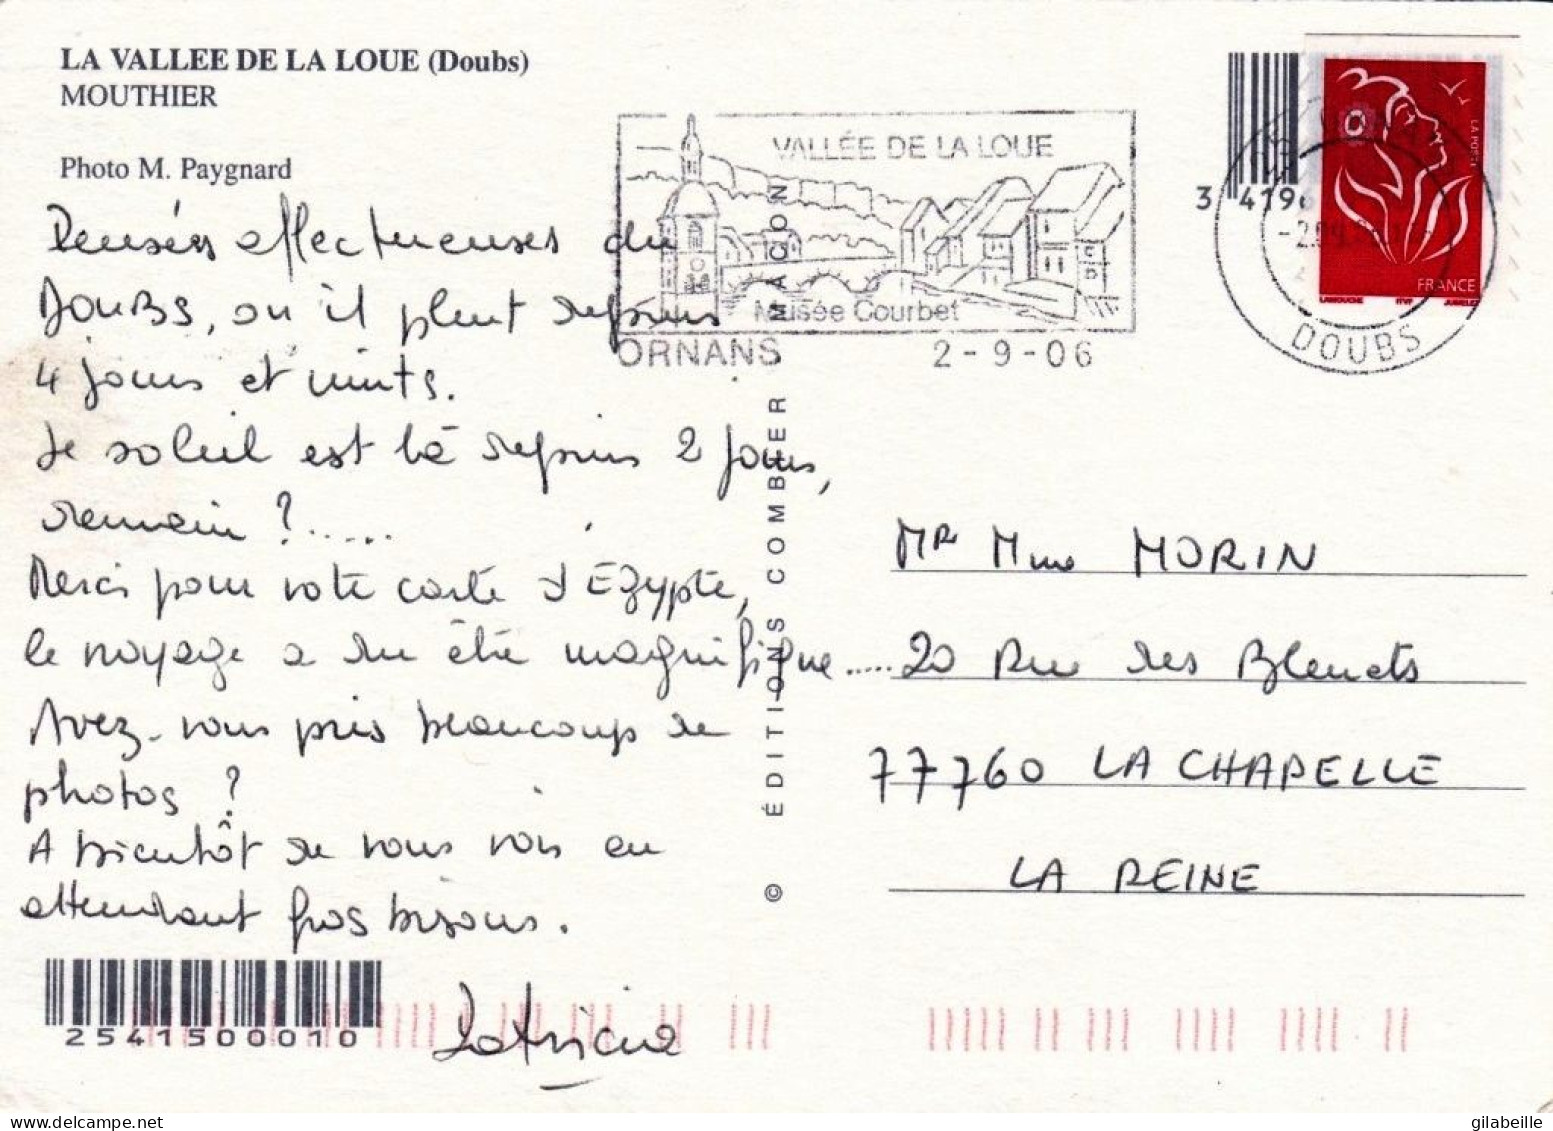 LA VALLEE DE LA LOUE (Doubs)
MOUTHIER
Photo M. Paygnard
Pensées affectueuses du
DOUBS, où il pleut depuis
4 jours et nuits.
Le soleil est là depuis 2 jours,
demain ?.....
Merci pour votre carte d'Egypte,
le voyage a du être magnifique.....
Avez-vous pris beaucoup de
photos ?
A bientôt de vous voir en
attendant gros bisous.
Patricia
2541500010
VALLÉE DE LA LOUE
Musée Courbet
ORNANS 2-9-06
© ÉDITIONS COMBIER MACON
3 4196
DOUBS
LA POSTE
FRANCE
LAMOUCHE ITVF JUMELET
Mr Mme MORIN
20 Rue des Bleuets
77760 LA CHAPELLE
LA REINE
gilabeille